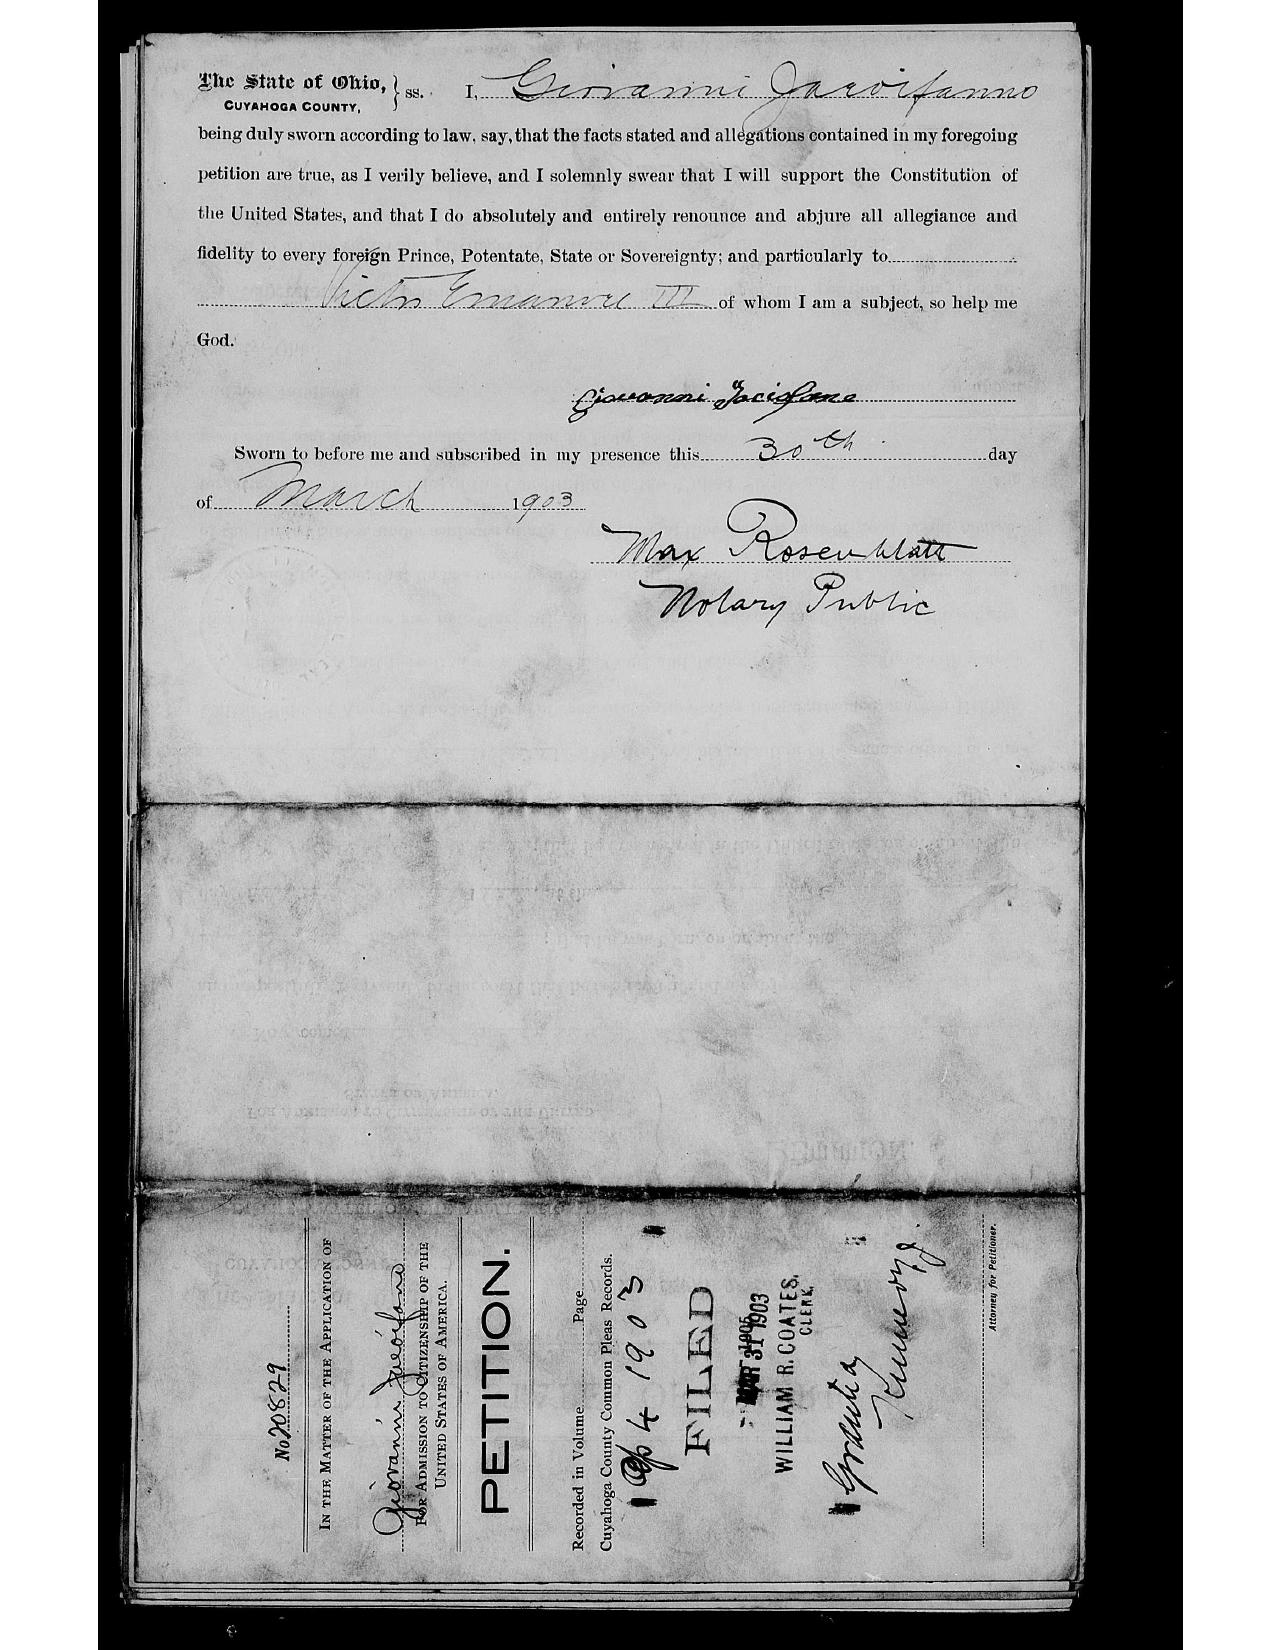 The State of Ohio, } ss. I, Giovanni
CUYAHOGA COUNTY,
being duly sworn according to law, say, that the facts stated and allegations contained in my foregoing
petition are true, as I verily believe, and I solemnly swear that I will support the Constitution of
the United States, and that I do absolutely and entirely renounce and abjure all allegiance and
fidelity to every foreign Prince, Potentate, State or Sovereignty; and particularly to
Victor Emanuel III of whom I am a subject, so help me
God.
Giovanni
Sworn to before me and subscribed in my presence this 30th day
of March 1903
Max Rosenblatt
Notary Public
No 20829
IN THE MATTER OF THE APPLICATION OF
Giovanni
FOR ADMISSION TO CITIZENSHIP OF THE
UNITED STATES OF AMERICA.
PETITION.
Recorded in Volume Page
Cuyahoga County Common Pleas Records.
4 1903
FILED
MAR 31 1903
WILLIAM R. COATES,
CLERK.
Attorney for Petitioner.